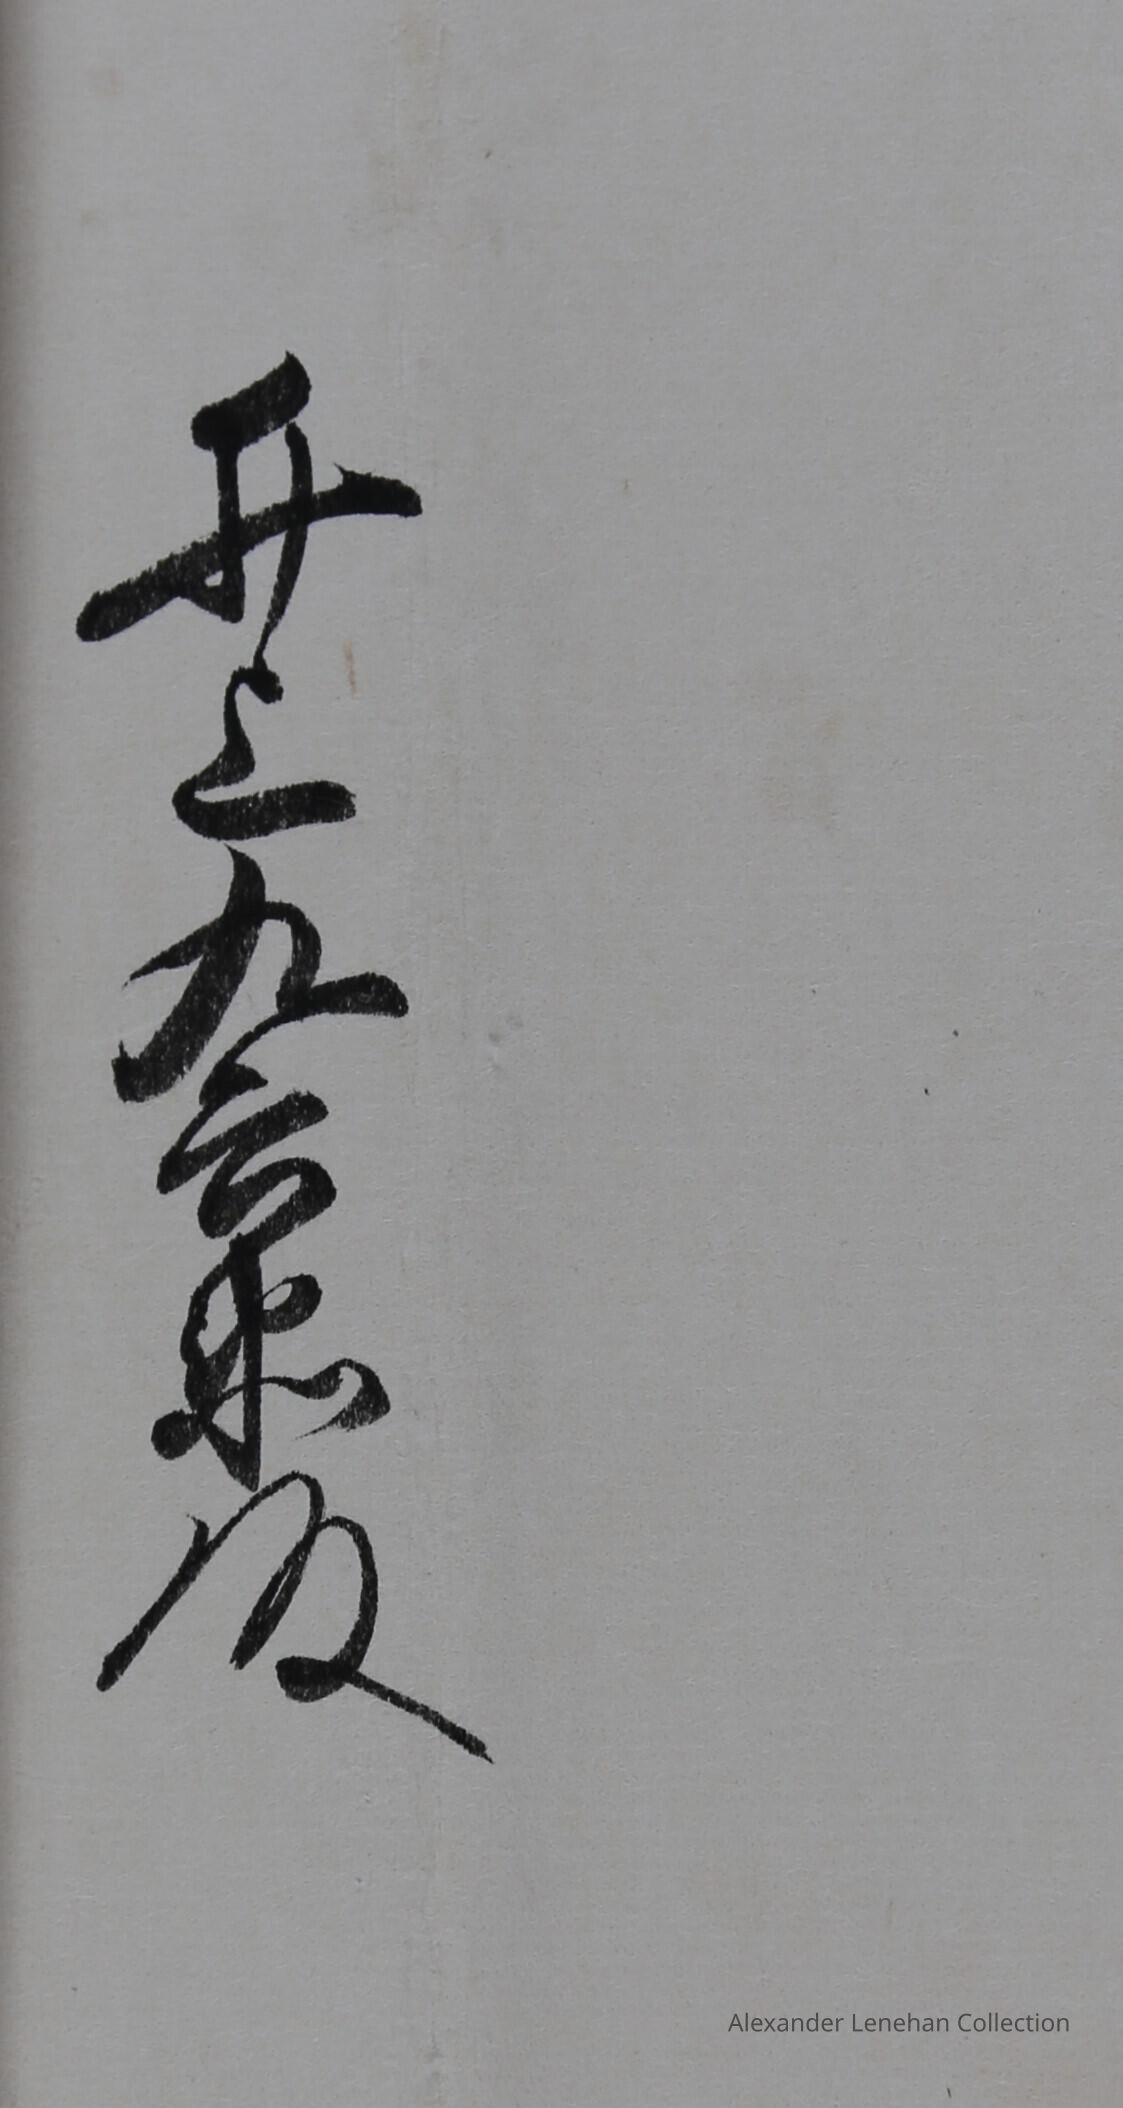 井上九兵衛殿
Alexander Lenehan Collection